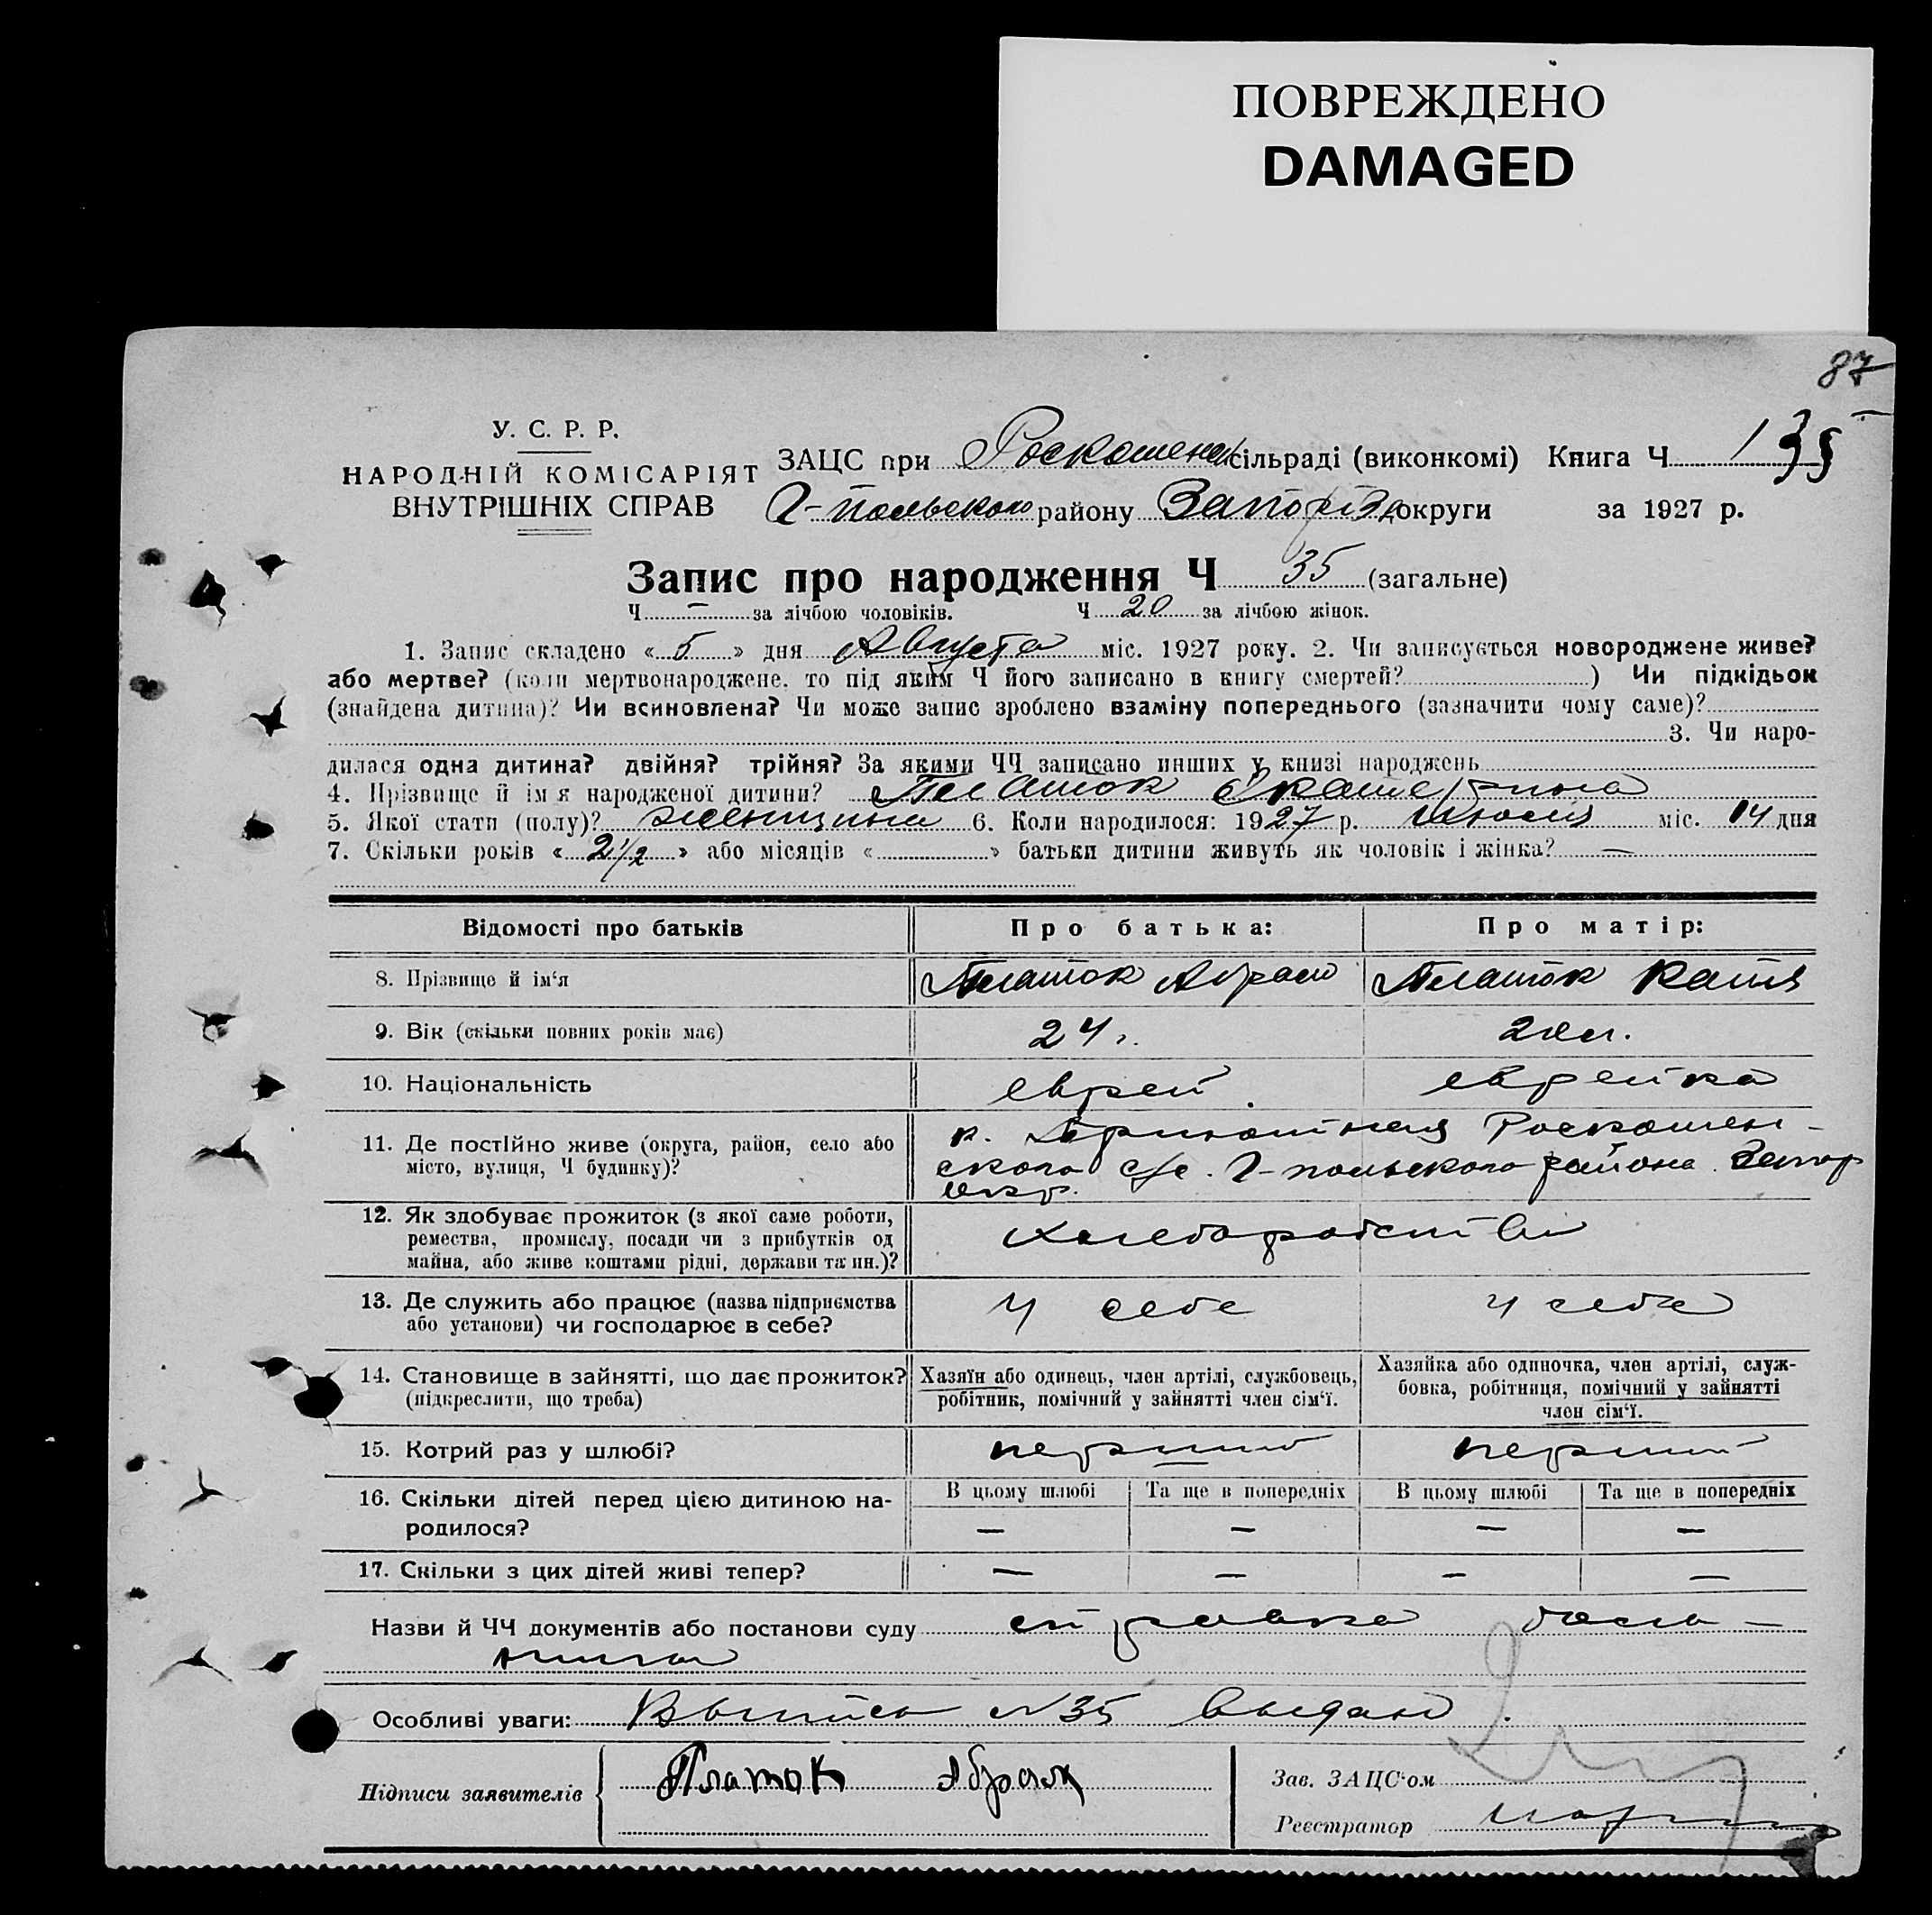 ПОВРЕЖДЕНО
DAMAGED
87
У. С. Р. Р.
НАРОДНІЙ КОМІСАРІЯТ
ВНУТРІШНІХ СПРАВ
ЗАЦС при Роскошенск сільраді (виконкомі) Книга Ч 135
Г-польского району Запоріз округи за 1927 р.
Запис про народження Ч 35 (загальне)
Ч — за лічбою чоловіків. Ч 20 за лічбою жінок.
1. Запис складено « 5 » дня Августа міс. 1927 року. 2. Чи записується новороджене живе?
або мертве? (коли мертвонароджене, то під яким Ч його записано в книгу смертей? ) Чи підкідьок
(знайдена дитина)? Чи всиновлена? Чи може запис зроблено взаміну попереднього (зазначити чому саме)?
3. Чи наро-
дилася одна дитина? двійня? трійня? За якими ЧЧ записано инших у книзі народжень
4. Прізвище й ім'я народженої дитини? Платок Екатерина
5. Якої стати (полу)? женщина 6. Коли народилося: 1927 р. Июля міс. 14 дня
7. Скільки років « 2 1/2 » або місяців « » батьки дитини живуть як чоловік і жінка? —
Відомості про батьків Про батька: Про матір:
8. Прізвище й ім'я Платок Абрам Платок Катя
9. Вік (скільки повних років має) 24 г.
10. Національність еврей еврейка
11. Де постійно живе (округа, район, село або місто, вулиця, Ч будинку)?
к. Роскошен-
ского с/с. Г-польского района Запор
окр.
12. Як здобуває прожиток (з якої саме роботи,
ремества, промислу, посади чи з прибутків од
майна, або живе коштами рідні, держави та ин.)?
Хлеборобство
13. Де служить або працює (назва підприємства
або установи) чи господарює в себе?
у себе у себе
14. Становище в зайнятті, що дає прожиток?
(підкреслити, що треба)
Хазяїн або одинець, член артілі, службовець,
робітник, помічний у зайнятті член сім'ї.
Хазяйка або одиночка, член артілі, служ-
бовка, робітниця, помічний у зайнятті
член сім'ї.
15. Котрий раз у шлюбі? первый первый
16. Скільки дітей перед цією дитиною на-
родилося?
В цьому шлюбі Та ще в попередніх В цьому шлюбі Та ще в попередніх
— — — —
17. Скільки з цих дітей живі тепер? — — — —
Назви й ЧЧ документів або постанови суду справка боль-
ницы
Особливі уваги: Выпись №35 выдано.
Підписи заявителів Платок Абрам
Зав. ЗАЦС'ом
Реєстратор